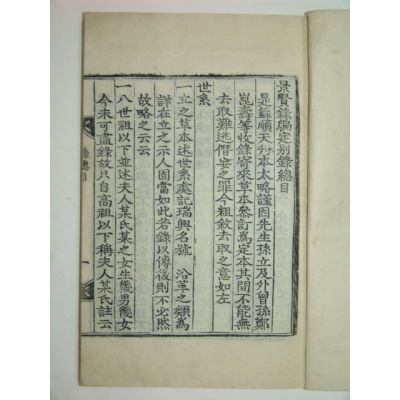 景賢錄編定別錄總目
是錄順天舊本太略謹因先生孫立及外曾孫鄭
崑壽等收錄寄來草本參訂爲定本其間不能無
去取難逃僭妄之罪今粗敘去取之意如左
世系
一立之草本述世系處記瑞興名號 沿革之類爲
詳在立之示人固當如此若錄以傳後則不必然
故略之云云
一八世祖以下並述夫人某氏某之女生幾男幾女
今未可盡錄故只自高祖以下稱夫人某氏註云
錄總目
一